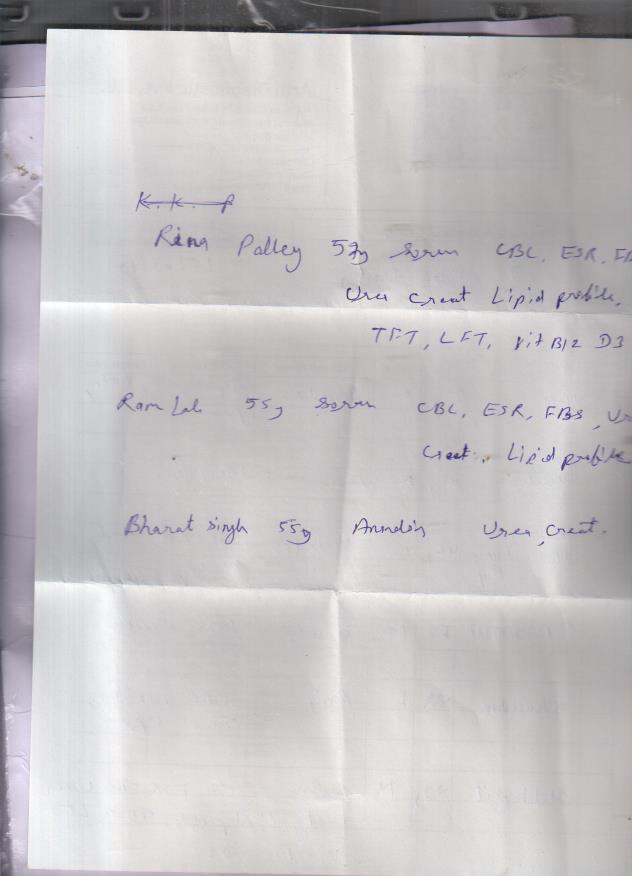 K. K. P
Rina Palley 57y CBC, ESR, FB
Urea Creat Lipid profile,
TFT, LFT, Vit B12 D3
Ram Lal 55y CBC, ESR, FBS, Ur
Creat. Lipid profile
Bharat Singh 55y Urea, Creat.